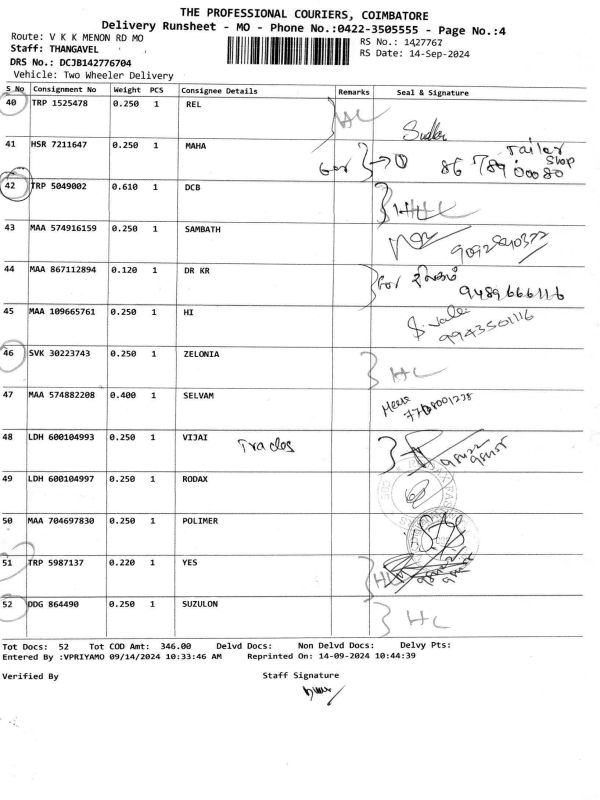 THE PROFESSIONAL COURIERS, COIMBATORE
Delivery Runsheet - MO - Phone No.:0422-3505555 - Page No.:4
Route: V K K MENON RD MO
RS No.: 1427767
Staff: THANGAVEL
RS Date: 14-Sep-2024
DRS No.: DCJB142776704
Vehicle: Two Wheeler Delivery
S No Consignment No Weight PCS Consignee Details Remarks Seal & Signature
40 TRP 1525478 0.250 1 REL HC
41 HSR 7211647 0.250 1 MAHA
42 TRP 5049002 0.610 1 DCB
43 MAA 574916159 0.250 1 SAMBATH
44 MAA 867112894 0.120 1 DR KR For 9489666116
45 MAA 109665761 0.250 1 HI 9943501116
46 SVK 30223743 0.250 1 ZELONIA HC
47 MAA 574882208 0.400 1 SELVAM
48 LDH 600104993 0.250 1 VIJAI Trades
49 LDH 600104997 0.250 1 RODAX
50 MAA 704697830 0.250 1 POLIMER
51 TRP 5987137 0.220 1 YES
52 DDG 864490 0.250 1 SUZULON HC
Tot Docs: 52 Tot COD Amt: 346.00 Delvd Docs: Non Delvd Docs: Delvy Pts:
Entered By :VPRIYAMO 09/14/2024 10:33:46 AM Reprinted On: 14-09-2024 10:44:39
Verified By Staff Signature